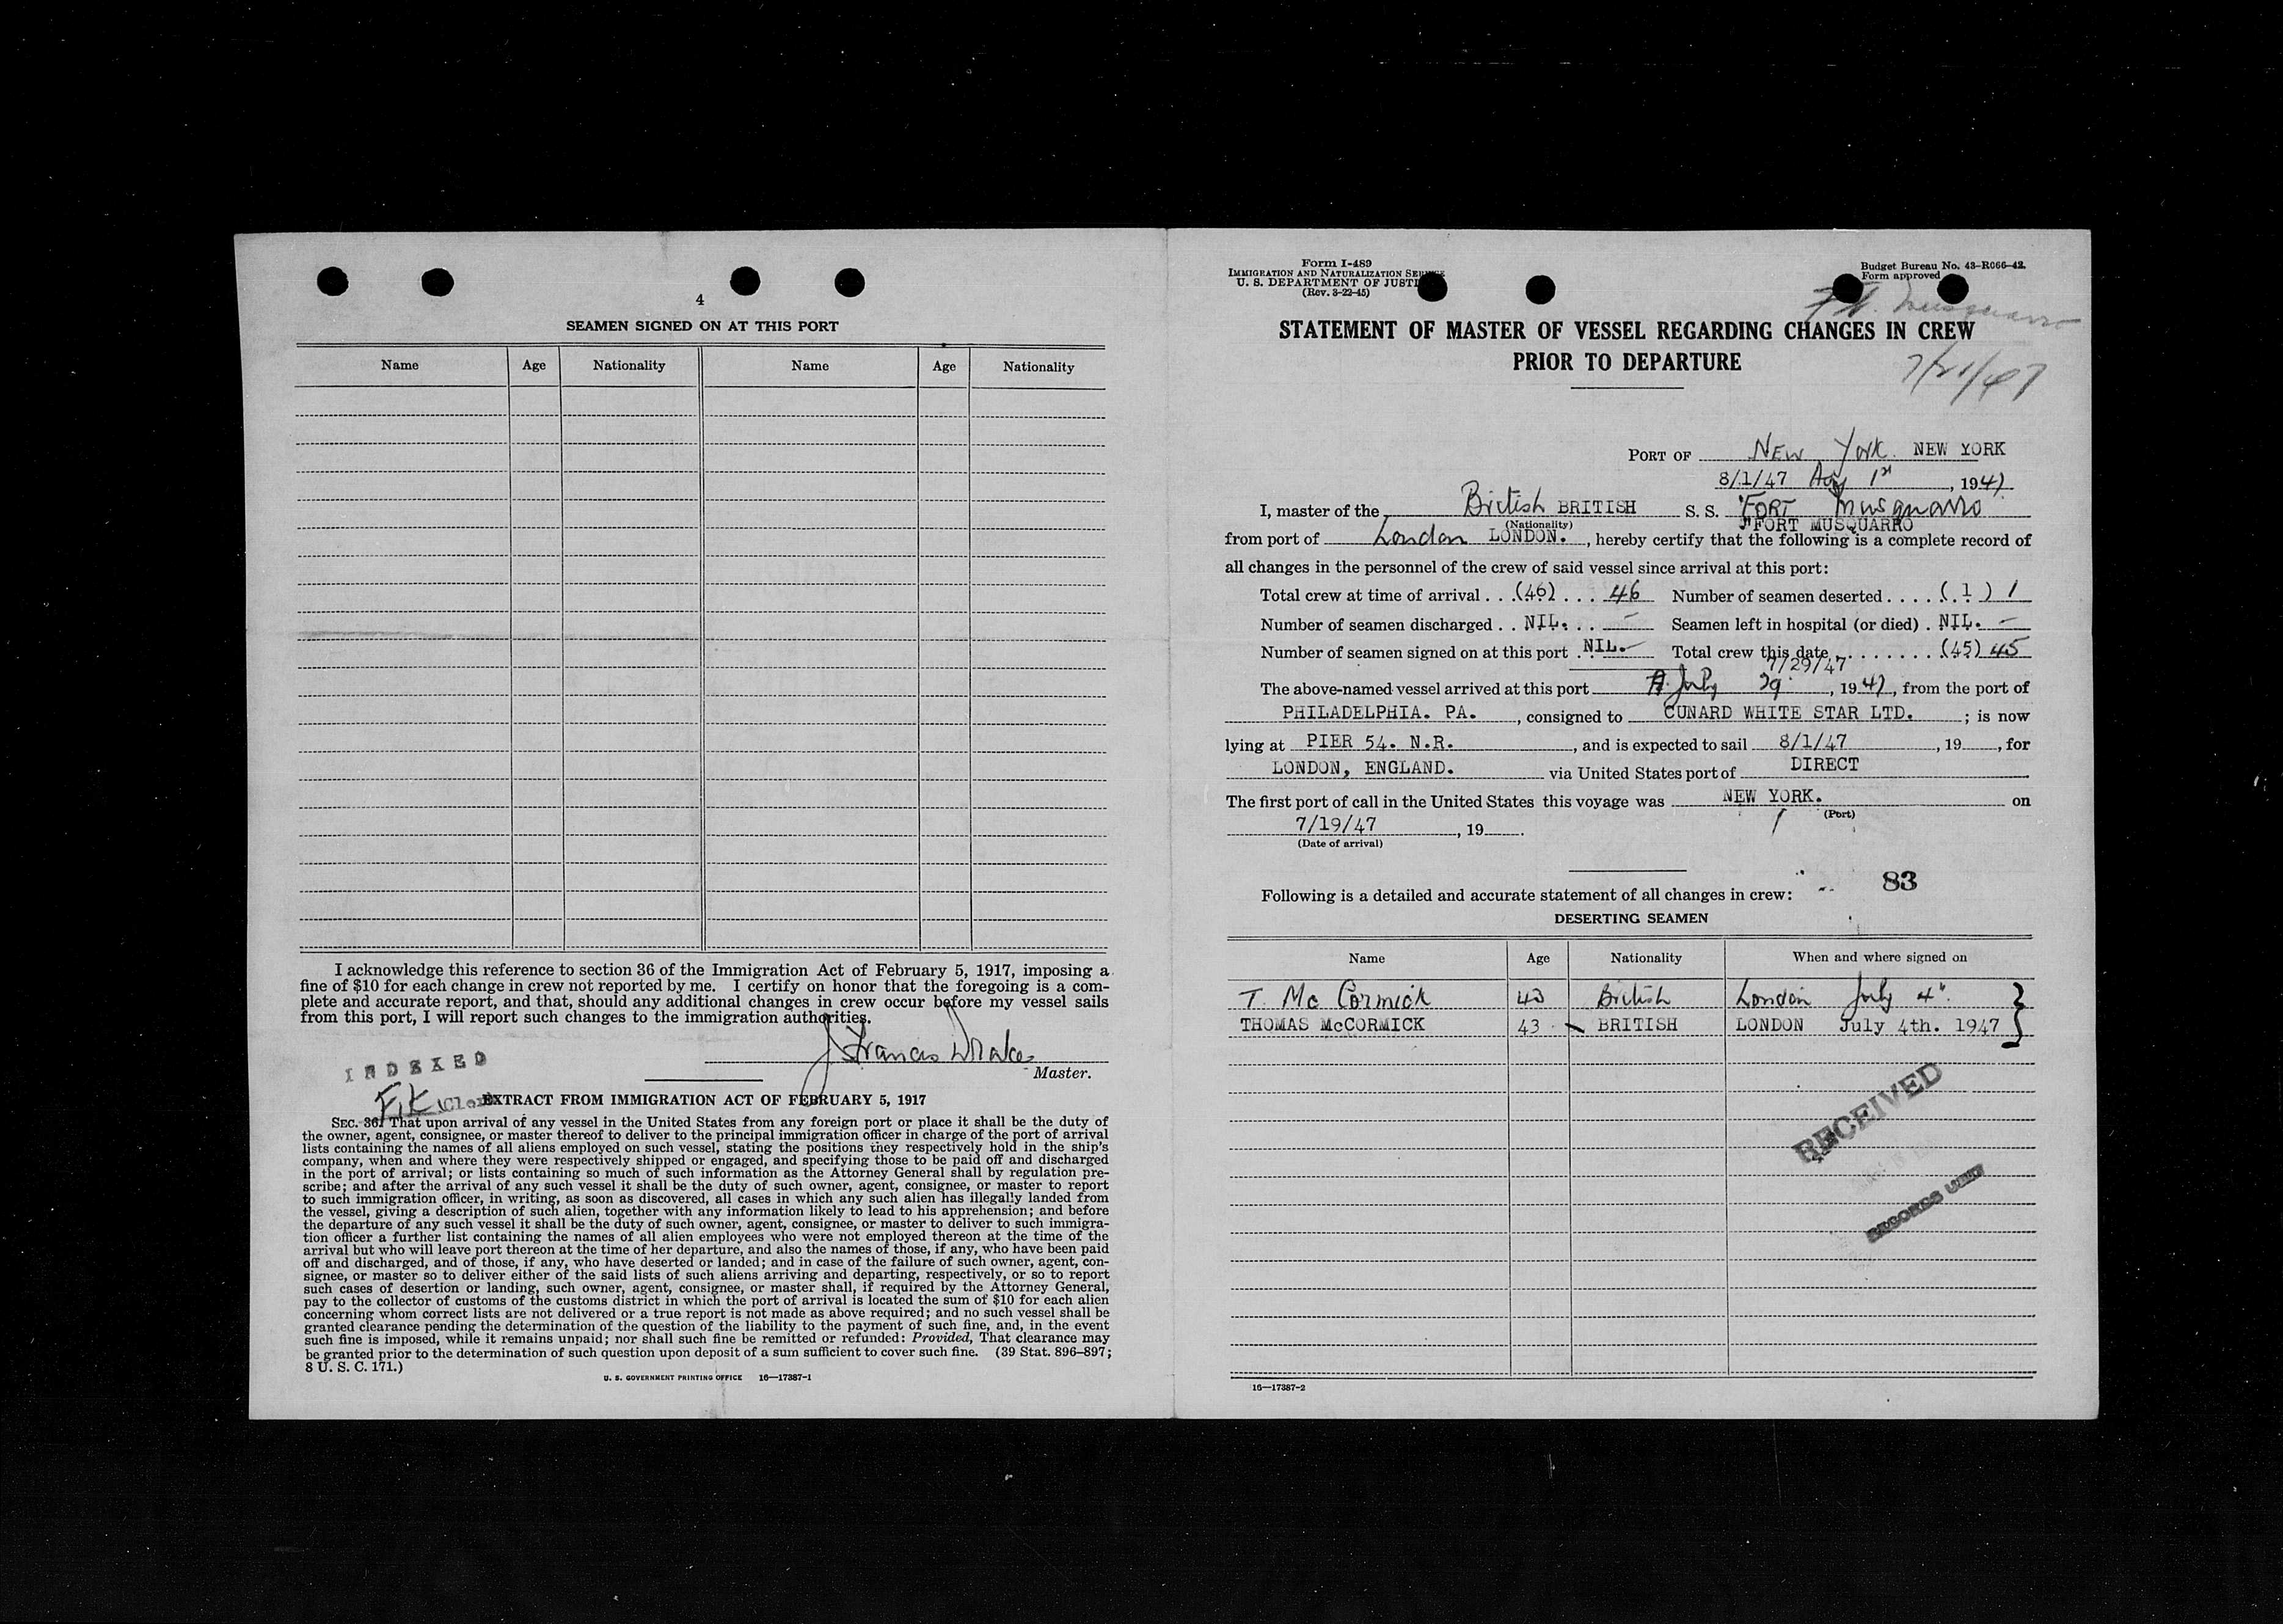 4
SEAMEN SIGNED ON AT THIS PORT
Name Age Nationality Name Age Nationality
I acknowledge this reference to section 36 of the Immigration Act of February 5, 1917, imposing a
fine of $10 for each change in crew not reported by me. I certify on honor that the foregoing is a com-
plete and accurate report, and that, should any additional changes in crew occur before my vessel sails
from this port, I will report such changes to the immigration authorities.
J Francis Drake
Master.
INDEXED
EXTRACT FROM IMMIGRATION ACT OF FEBRUARY 5, 1917
SEC. 36. That upon arrival of any vessel in the United States from any foreign port or place it shall be the duty of
the owner, agent, consignee, or master thereof to deliver to the principal immigration officer in charge of the port of arrival
lists containing the names of all aliens employed on such vessel, stating the positions they respectively hold in the ship's
company, when and where they were respectively shipped or engaged, and specifying those to be paid off and discharged
in the port of arrival; or lists containing so much of such information as the Attorney General shall by regulation pre-
scribe; and after the arrival of any such vessel it shall be the duty of such owner, agent, consignee, or master to report
to such immigration officer, in writing, as soon as discovered, all cases in which any such alien has illegally landed from
the vessel, giving a description of such alien, together with any information likely to lead to his apprehension; and before
the departure of any such vessel it shall be the duty of such owner, agent, consignee, or master to deliver to such immigra-
tion officer a further list containing the names of all alien employees who were not employed thereon at the time of the
arrival but who will leave port thereon at the time of her departure, and also the names of those, if any, who have been paid
off and discharged, and of those, if any, who have deserted or landed; and in case of the failure of such owner, agent, con-
signee, or master so to deliver either of the said lists of such aliens arriving and departing, respectively, or so to report
such cases of desertion or landing, such owner, agent, consignee, or master shall, if required by the Attorney General,
pay to the collector of customs of the customs district in which the port of arrival is located the sum of $10 for each alien
concerning whom correct lists are not delivered or a true report is not made as above required; and no such vessel shall be
granted clearance pending the determination of the question of the liability to the payment of such fine, and, in the event
such fine is imposed, while it remains unpaid; nor shall such fine be remitted or refunded: Provided, That clearance may
be granted prior to the determination of such question upon deposit of a sum sufficient to cover such fine. (39 Stat. 896–897;
8 U. S. C. 171.)
U. S. GOVERNMENT PRINTING OFFICE 16—17387-1
Form I-489
IMMIGRATION AND NATURALIZATION SERVICE
U. S. DEPARTMENT OF JUSTI
(Rev. 3-22-45)
Budget Bureau No. 43-R066-42.
Form approved
Ft. Musquarro
STATEMENT OF MASTER OF VESSEL REGARDING CHANGES IN CREW
PRIOR TO DEPARTURE
7/21/47
PORT OF New York NEW YORK
8/1/47 Aug 1st, 1947
I, master of the British BRITISH S. S. "FORT Musquarro
(Nationality) "FORT MUSQUARRO
from port of London LONDON., hereby certify that the following is a complete record of
all changes in the personnel of the crew of said vessel since arrival at this port:
Total crew at time of arrival . . (46) . . . 46 Number of seamen deserted . . . . (1) 1
Number of seamen discharged . . NIL. . . – Seamen left in hospital (or died) . NIL. –
Number of seamen signed on at this port . NIL. – Total crew this date . . . . . . . . (45) 45
7/29/47
The above-named vessel arrived at this port July 29, 1947, from the port of
PHILADELPHIA. PA., consigned to CUNARD WHITE STAR LTD. ; is now
lying at PIER 54. N.R., and is expected to sail 8/1/47, 19 , for
LONDON, ENGLAND. via United States port of DIRECT
The first port of call in the United States this voyage was NEW YORK. on
(Port)
7/19/47, 19 .
(Date of arrival)
83
Following is a detailed and accurate statement of all changes in crew:
DESERTING SEAMEN
Name Age Nationality When and where signed on
T. Mc Cormick 43 British London July 4"
THOMAS McCORMICK 43 BRITISH LONDON July 4th. 1947
RECEIVED
RECORDS UNIT
16—17387-2